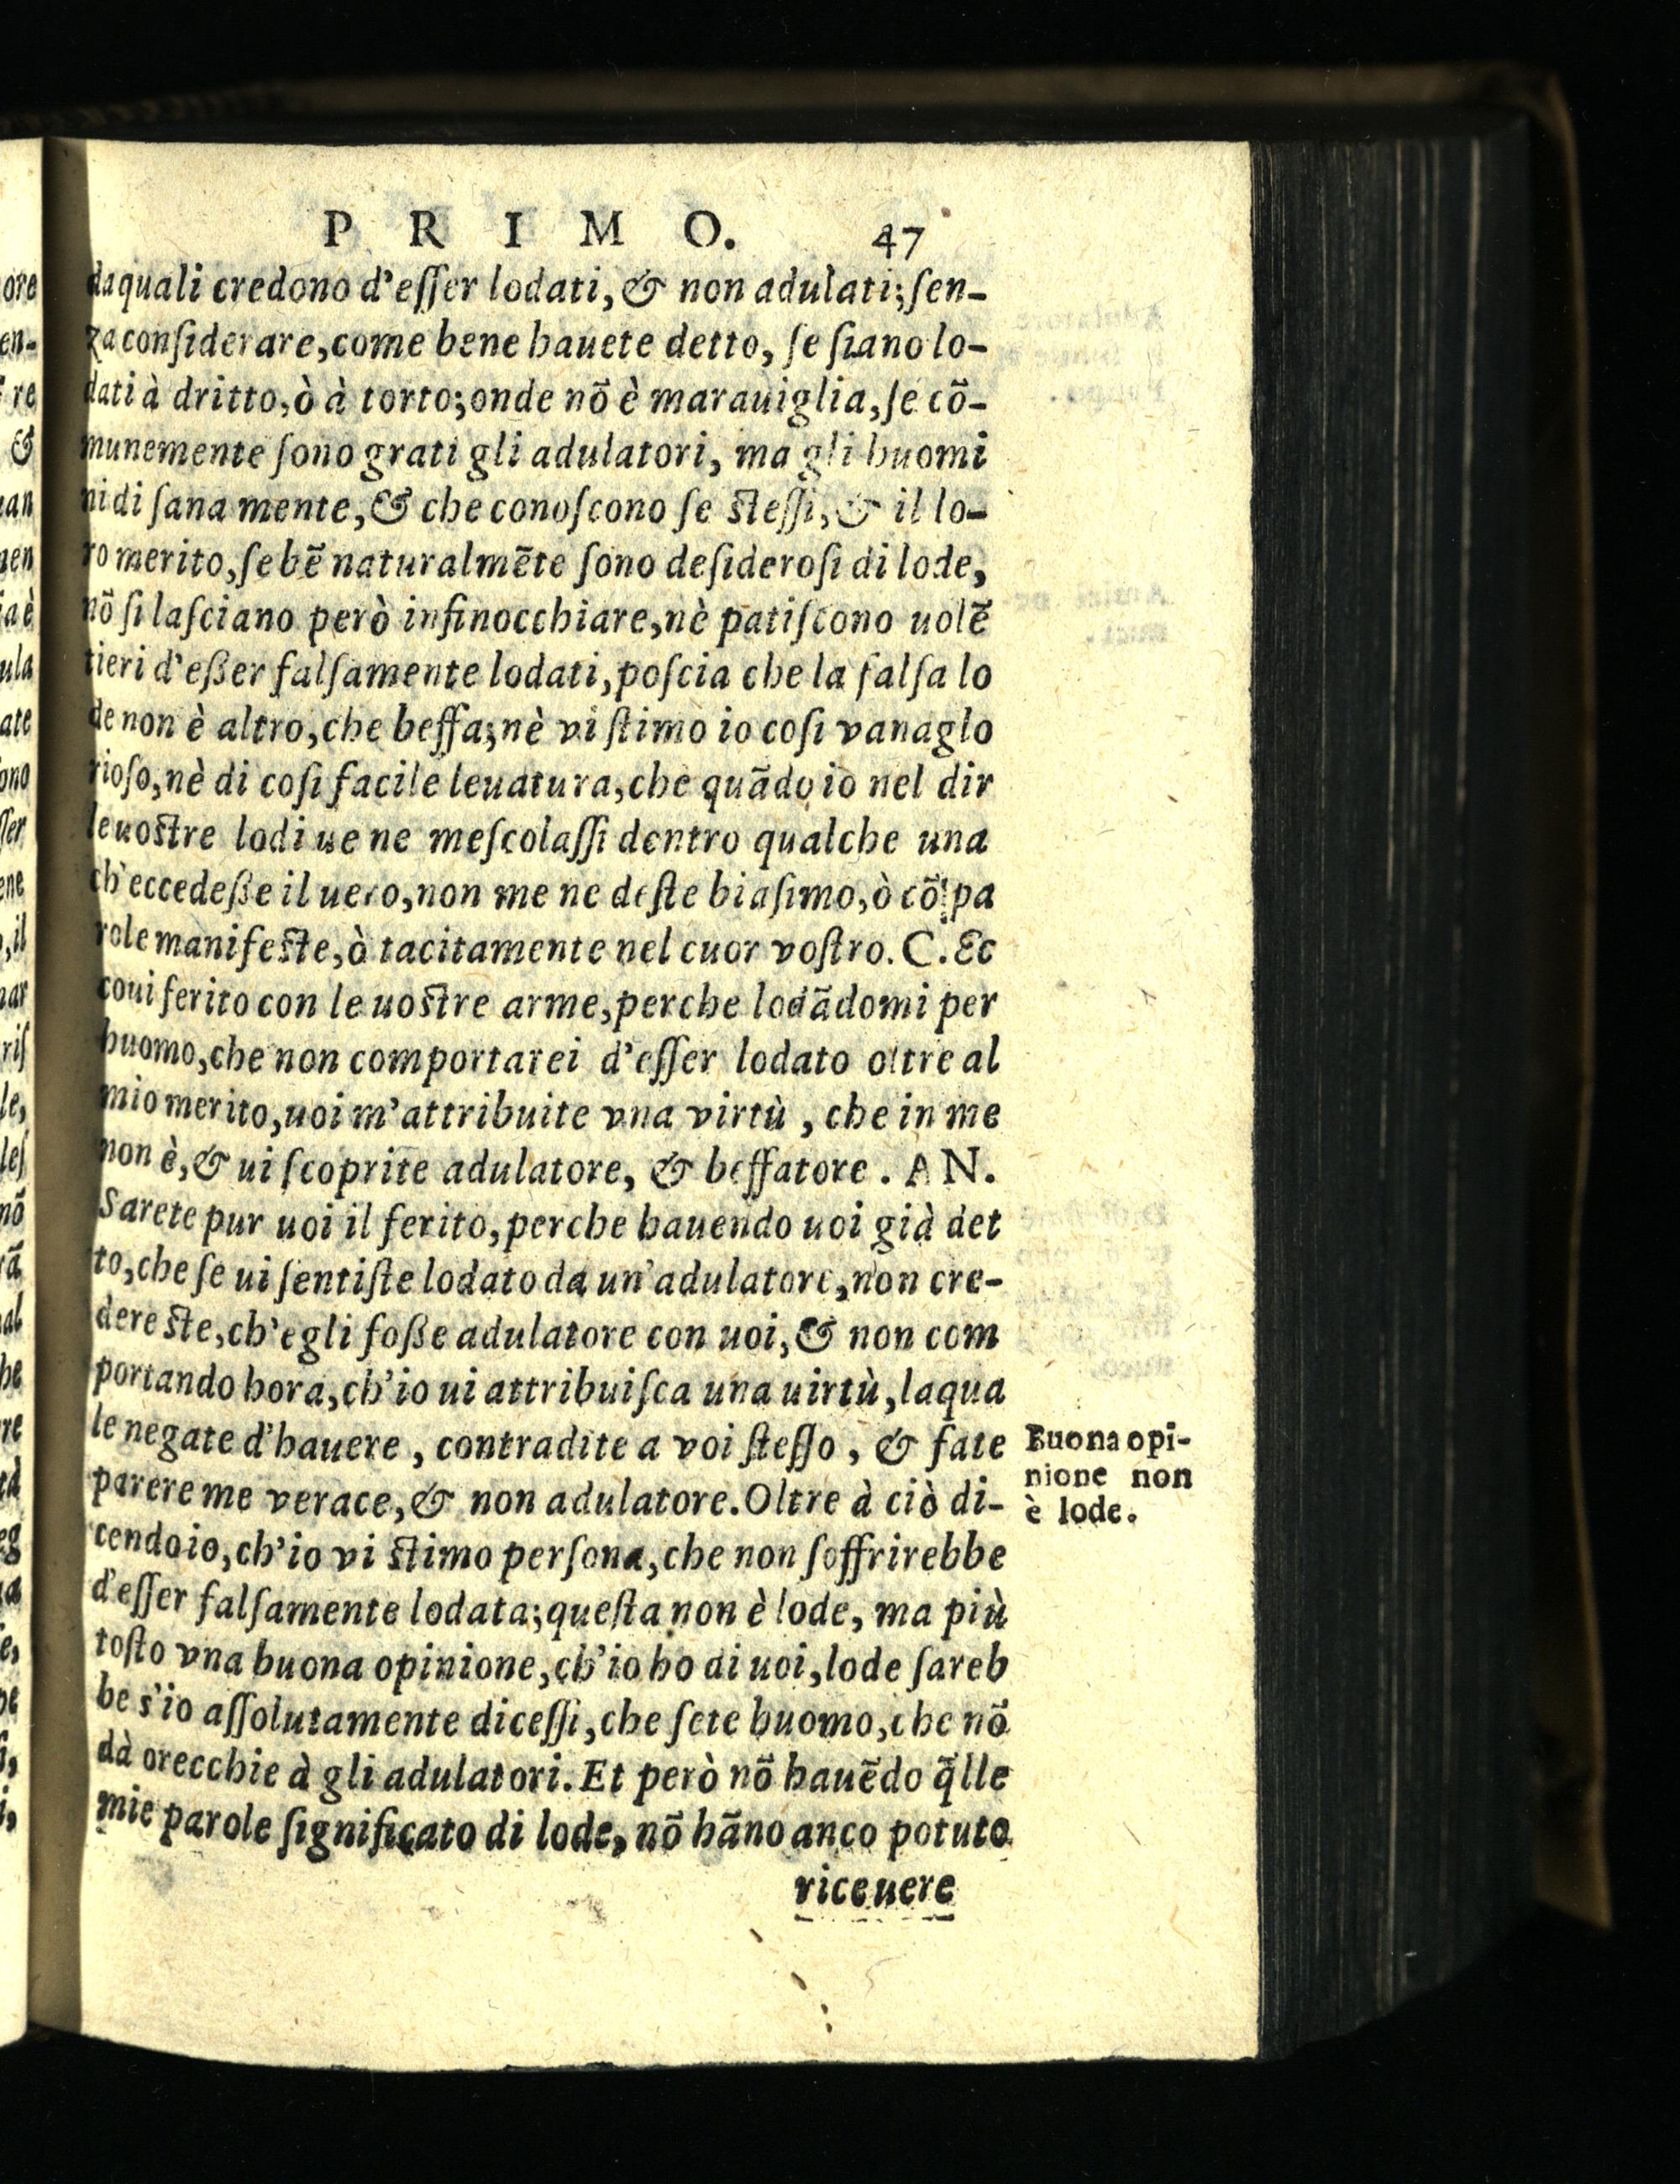 PRIMO. 47
da quali credono d'eſſer lodati, & non adulati; ſen-
za conſiderare, come bene hauete detto, ſe ſiano lo-
dati à dritto, ò à torto; onde nō è marauiglia, ſe cō-
munemente ſono grati gli adulatori, ma gli huomi
ni di ſana mente, & che conoſcono ſe ſteſſi, & il lo-
ro merito, ſe bē naturalmēte ſono deſideroſi di lode,
nō ſi laſciano però infinocchiare, nè patiſcono uolē
tieri d'eßer falſamente lodati, poſcia che la falſa lo
de non è altro, che beffa; nè vi ſtimo io coſi vanaglo
rioſo, nè di coſi facile leuatura, che quādo io nel dir
le uoſtre lodi ue ne meſcolaſſi dentro qualche una
ch'eccedeße il uero, non me ne deſte biaſimo, ò cō pa
role manifeſte, ò tacitamente nel cuor voſtro. C. Ec
coui ferito con le uoſtre arme, perche lodādomi per
huomo, che non comportarei d'eſſer lodato oltre al
mio merito, uoi m'attribuite vna virtù, che in me
non è, & ui ſcoprite adulatore, & beffatore. AN.
Sarete pur uoi il ferito, perche hauendo uoi già det
to, che ſe ui ſentiſte lodato da un'adulatore, non cre-
dereſte, ch'egli foße adulatore con uoi, & non com
portando hora, ch'io ui attribuiſca una uirtù, laqua
le negate d'hauere, contradite a voi ſteſſo, & fate
parere me verace, & non adulatore. Oltre à ciò di-
cendo io, ch'io vi ſtimo perſona, che non ſoffrirebbe
d'eſſer falſamente lodata; queſta non è lode, ma più
toſto vna buona opinione, ch'io ho di uoi, lode ſareb
be s'io aſſolutamente diceſſi, che ſete huomo, che nō
dà orecchie à gli adulatori. Et però nō hauēdo q̃lle
mie parole ſignificato di lode, nō hāno anco potuto
riceuere
Buona opi-
nione non
è lode.